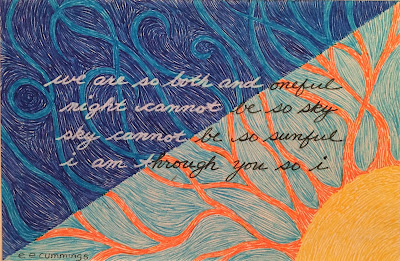 we are so both and oneful
night cannot be so sky
sky cannot be so sunful
i am through you so i
e e cummings